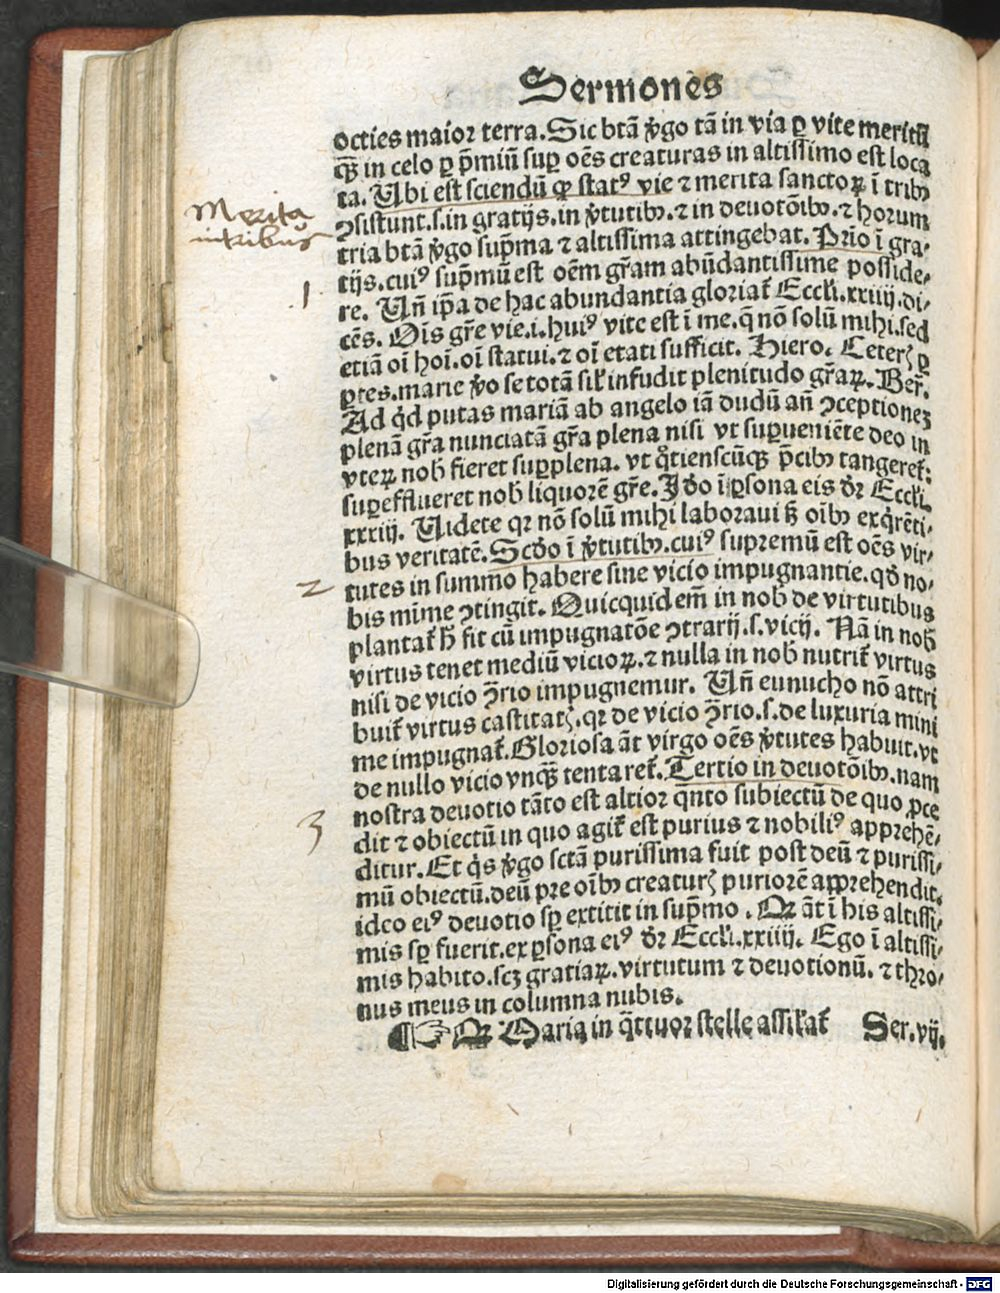 Sermones
octies maior terra. Sic btā v̄go tā in via ꝑ vite meritū
qȝ in celo ꝑ p̄miū suꝑ oēs creaturas in altissimo est loca
ta. Ubi est sciendū ꝙ statꝰ vie ⁊ merita sanctoꝝ ī tribꝰ
ꝯsistunt .s. in gratijs. in v̄tutibꝰ. ⁊ in deuotōibꝰ. ⁊ horum
Merita
in tribus
tria btā v̄go sup̄ma ⁊ altissima attingebat. Prīo ī gra-
tijs. cuiꝰ sup̄mū est oēm gr̄am abūdantissime posside-
1
re. Un̄ ip̄a de hac abundantia gloriat̄ Eccl̄i. xxiiij. di-
cēs. Oīs gr̄e vie .i. huiꝰ vite est ī me. q̄ nō solū mihi. sed
etiā oī hoī. oī statui. ⁊ oī etati sufficit. Hiero. Ceterꝭ ꝑ
ꝑtes. marie v̄o se totā sil̄ infudit plenitudo gr̄aꝝ. Ber̄.
Ad qd̄ putas mariā ab angelo iā dudū an̄ ꝯceptioneȝ
plenā gr̄a nunciatā gr̄a plena nisi vt suꝑueniēte deo in
vteꝝ nob̄ fieret suꝑplena. vt q̊tienscūqȝ p̄cibꝰ tangeret̄:
suꝑefflueret nob̄ liquorē gr̄e. Idō ī ꝑsona eiꝰ dr̄ Eccl̄i.
xxxiij. Uidete qꝛ nō solū mihi laboraui sȝ oībꝰ exq̄rēti-
bus veritatē. Scdō ī v̄tutibꝰ. cuiꝰ supremū est oēs vir-
2
tutes in summo habere sine vicio impugnantie. qd̄ no-
bis mīme ꝯtingit. Quicquid em̄ in nob̄ de virtutibus
plantat̄ h̄ fit cū impugnatōe ꝯtrarij .s. vicij. Nā in nob̄
virtus tenet mediū vicioꝝ. ⁊ nulla in nob̄ nutrit̄ virtus
nisi de vicio ꝯ̄rio impugnemur. Un̄ eunucho nō attri
buit̄ virtus castitatꝭ. qꝛ de vicio ꝯ̄rio .s. de luxuria mini
me impugnat̄. Gloriosa āt virgo oēs v̄tutes habuit. vt
de nullo vicio vnqȝ tentaret̄. Tertio in deuotōibꝰ. nam
3
nostra deuotio tāto est altior q̄nto subiectū de quo ꝓce
dit ⁊ obiectū in quo agit̄ est purius ⁊ nobiliꝰ apprehē-
ditur. Et q̄s v̄go sctā purissima fuit post deū ⁊ purissi-
mū obiectū. deū pre oībꝰ creaturꝭ puriorē apprehendit.
ideo eiꝰ deuotio sꝑ extitit in sup̄mo. Qꝛ āt ī his altissi-
mis sꝑ fuerit. ex ꝑsona eiꝰ dr̄ Eccl̄i. xxiiij. Ego ī altissi-
mis habito. scȝ gratiaꝝ. virtutum ⁊ deuotionū. ⁊ thro-
nus meus in columna nubis.
¶ ☞ Qꝛ Maria in q̄ttuor stelle assil̄at̄ Ser. vij.
Digitalisierung gefördert durch die Deutsche Forschungsgemeinschaft - DFG